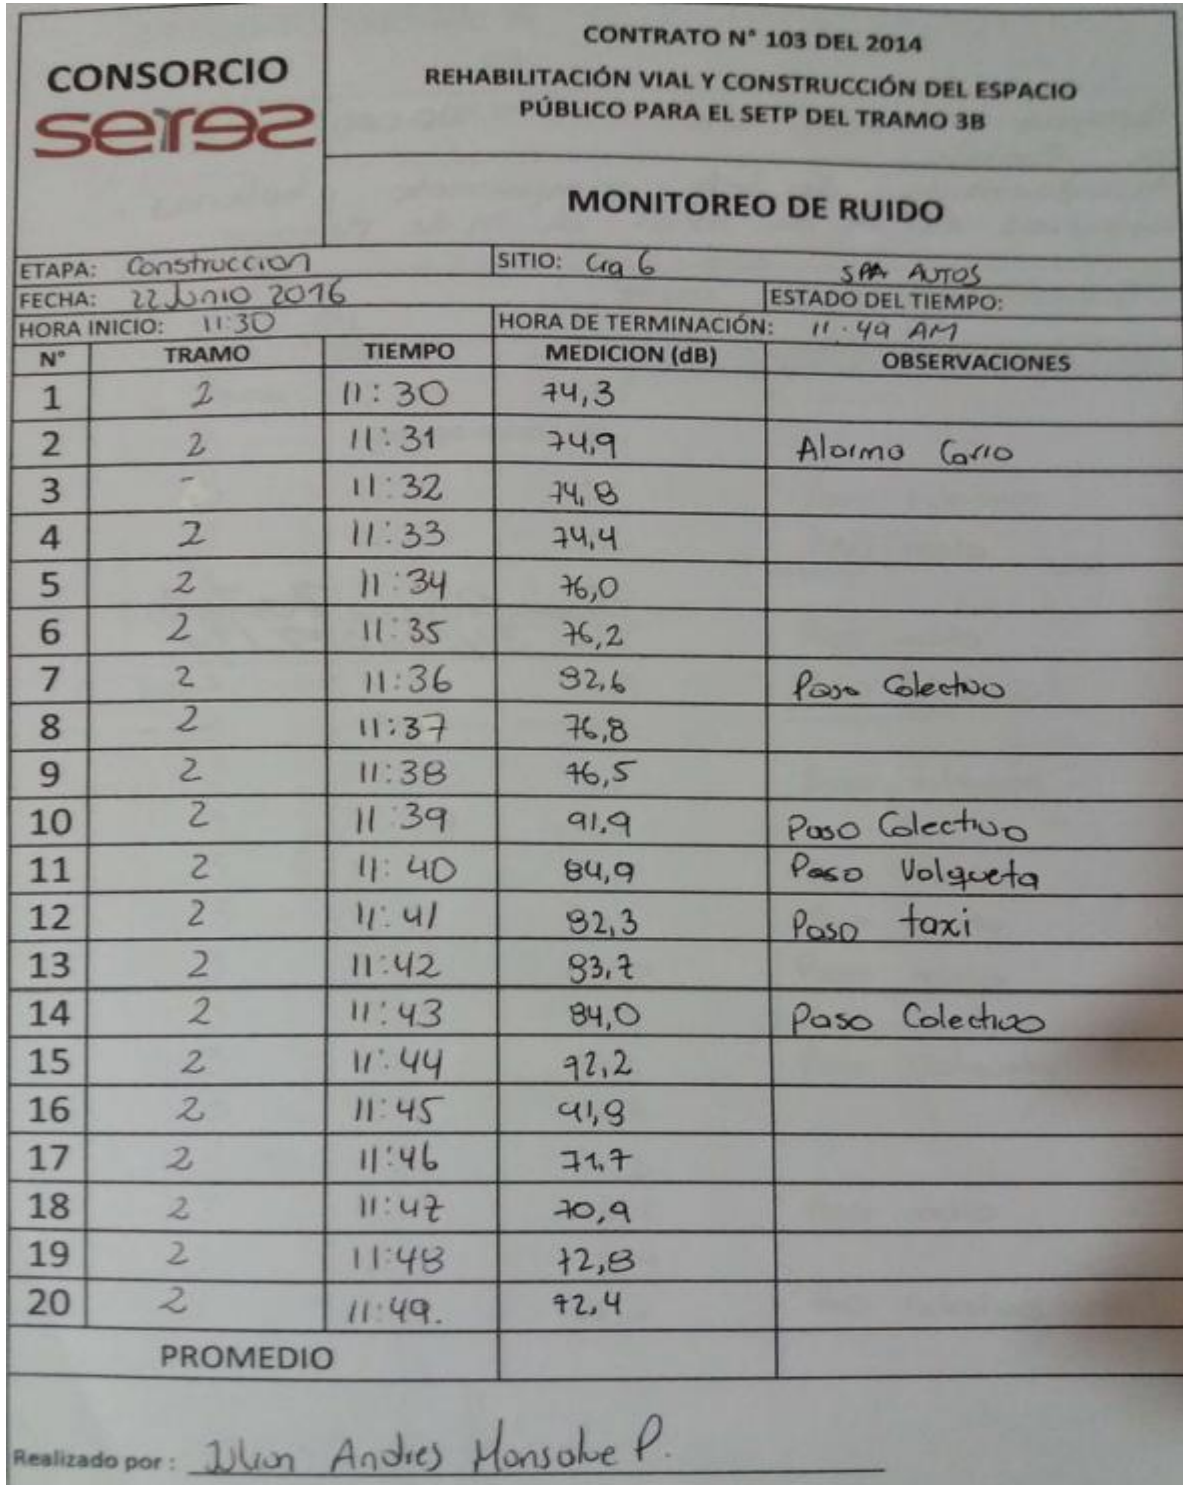 CONSORCIO
serez
CONTRATO N° 103 DEL 2014
REHABILITACIÓN VIAL Y CONSTRUCCIÓN DEL ESPACIO
PÚBLICO PARA EL SETP DEL TRAMO 3B
MONITOREO DE RUIDO
ETAPA: Construccion SITIO: Cra 6 SPA AUTOS
FECHA: 22 Junio 2016 ESTADO DEL TIEMPO:
HORA INICIO: 11:30 HORA DE TERMINACIÓN: 11:49 AM
N° TRAMO TIEMPO MEDICION (dB) OBSERVACIONES
1 2 11:30 74,3
2 2 11:31 74,9 Alarma Carro
3 - 11:32 74,8
4 2 11:33 74,4
5 2 11:34 76,0
6 2 11:35 76,2
7 2 11:36 92,6 Paso Colectivo
8 2 11:37 76,8
9 2 11:38 76,5
10 2 11:39 91,9 Paso Colectivo
11 2 11:40 84,9 Paso Volqueta
12 2 11:41 92,3 Paso taxi
13 2 11:42 93,7
14 2 11:43 84,0 Paso Colectivo
15 2 11:44 92,2
16 2 11:45 91,9
17 2 11:46 71,7
18 2 11:47 70,9
19 2 11:48 72,8
20 2 11:49. 72,4
PROMEDIO
Realizado por : Julian Andres Monsalve P.